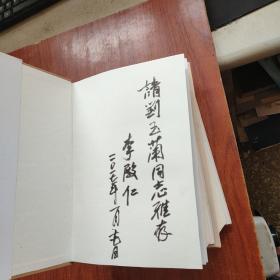 請劉玉蘭同志雅存
李殿仁
二〇一七年月日